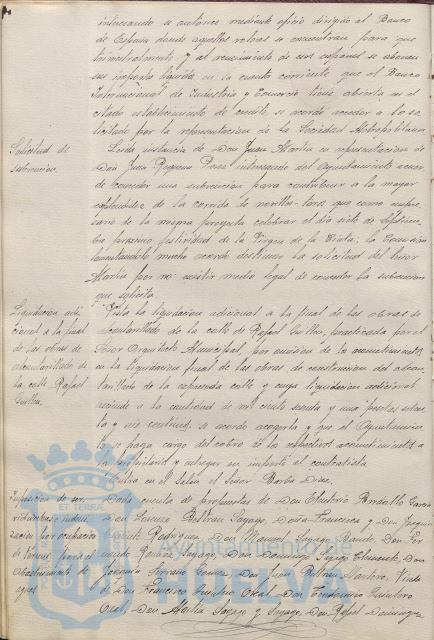 interesando se autorice mediante oficio dirigido al Banco
de España donde aquellos valores se encuentran para que
trimestralmente y al vencimiento de sus cupones se abonen
su importe líquido en la cuenta corriente que el Banco
Internacional de Industria y Comercio tiene abierta en el
citado establecimiento de crédito, se acordó acceder a lo so-
licitado por la representación de la Sociedad Metropolitana.
Solicitud de
subvención.
Leida instancia de Don Juan Martín en representación de
Don Juan interesando del Ayuntamiento acuer-
de conceder una subvención para contribuir a la mayor
esplendidez de la corrida de novillos-toros que como empre-
sario de la misma proyecta celebrar el día siete de Septiem-
bre próximo festividad de la Virgen de la Cinta; la Comisión
lamentándolo mucho acordó destimar la solicitud del Señor
Martín por no existir medio legal de conceder la subvención
que solicita.
Liquidación adi-
cional a la final
de las obras de
alcantarillado de
la calle Rafael
Guillen.
Vista la liquidación adicional a la final de las obras de
alcantarillado de la calle de Rafael Guillen, practicada por el
Señor Arquitecto Municipal, por omisión de las acometimientos
en la liquidación final de las obras de construcción del alcan-
tarillado de la expresada calle y cuya liquidación adicional
asciende a la cantidad de mil ciento sesenta y una pesetas seten-
ta y seis céntimos, se acordó acogerla y que el Ayuntamien-
to se haga cargo del cobro de los respectivos acometimientos a
los propietarios y entregar su importe al contratista.
Entra en el salón el Señor Barba Díaz.
Imposición de ser-
vidumbre e indem-
nización por ocupación
de terreno para el
abastecimiento de
aguas
Dada cuenta de propuestas de Don Eleuterio Bordallo García
Don Lorenzo Beltran Sayago, Doña Francisca y Don Joaquín
Rodríguez, Don Manuel Sayago Don Fer-
Sayago, Don Domingo Clemente, Don
Joaquín Serrano Gomez, Don Juan Beltran Santero, Viuda
de Don Francisco Don Santero
Don Martín Sayago y Sayago, Don Rafael Dominguez
Ayuntamiento de
HUELVA
ET TERRÆ